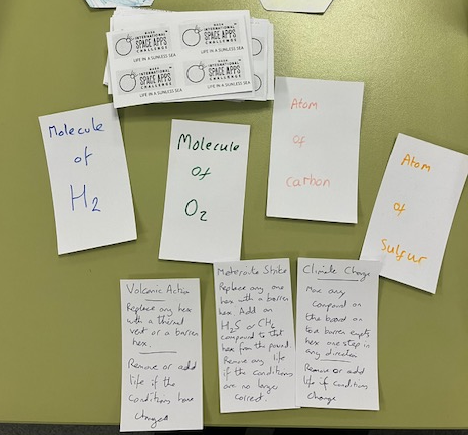 NASA
INTERNATIONAL
SPACE APPS
CHALLENGE
LIFE IN A SUNLESS SEA
NASA
INTERNATIONAL
SPACE APPS
CHALLENGE
LIFE IN A SUNLESS SEA
INTERNATIONAL
SPACE APPS
CHALLENGE
LIFE IN A SUNLESS SEA
INTERNATIONAL
SPACE APPS
CHALLENGE
LIFE IN A SUNLESS SEA
Molecule
of
H2
Molecule
of
O2
Atom
of
Carbon
Atom
of
Sulfur
Volcanic Action
Replace any hex
with a thermal
vent or a barren
hex.
Remove or add
life if the
conditions have
changed
Meteorite Strike
Replace any one
hex with a barren
hex. Add an
H2S or CH4
compound to that
hex from the pound.
Remove any life
if the conditions
are no longer
correct.
Climate Change
Move any
compound on
the board on
to a barren empty
hex one step in
any direction
Remove or add
life if conditions
change